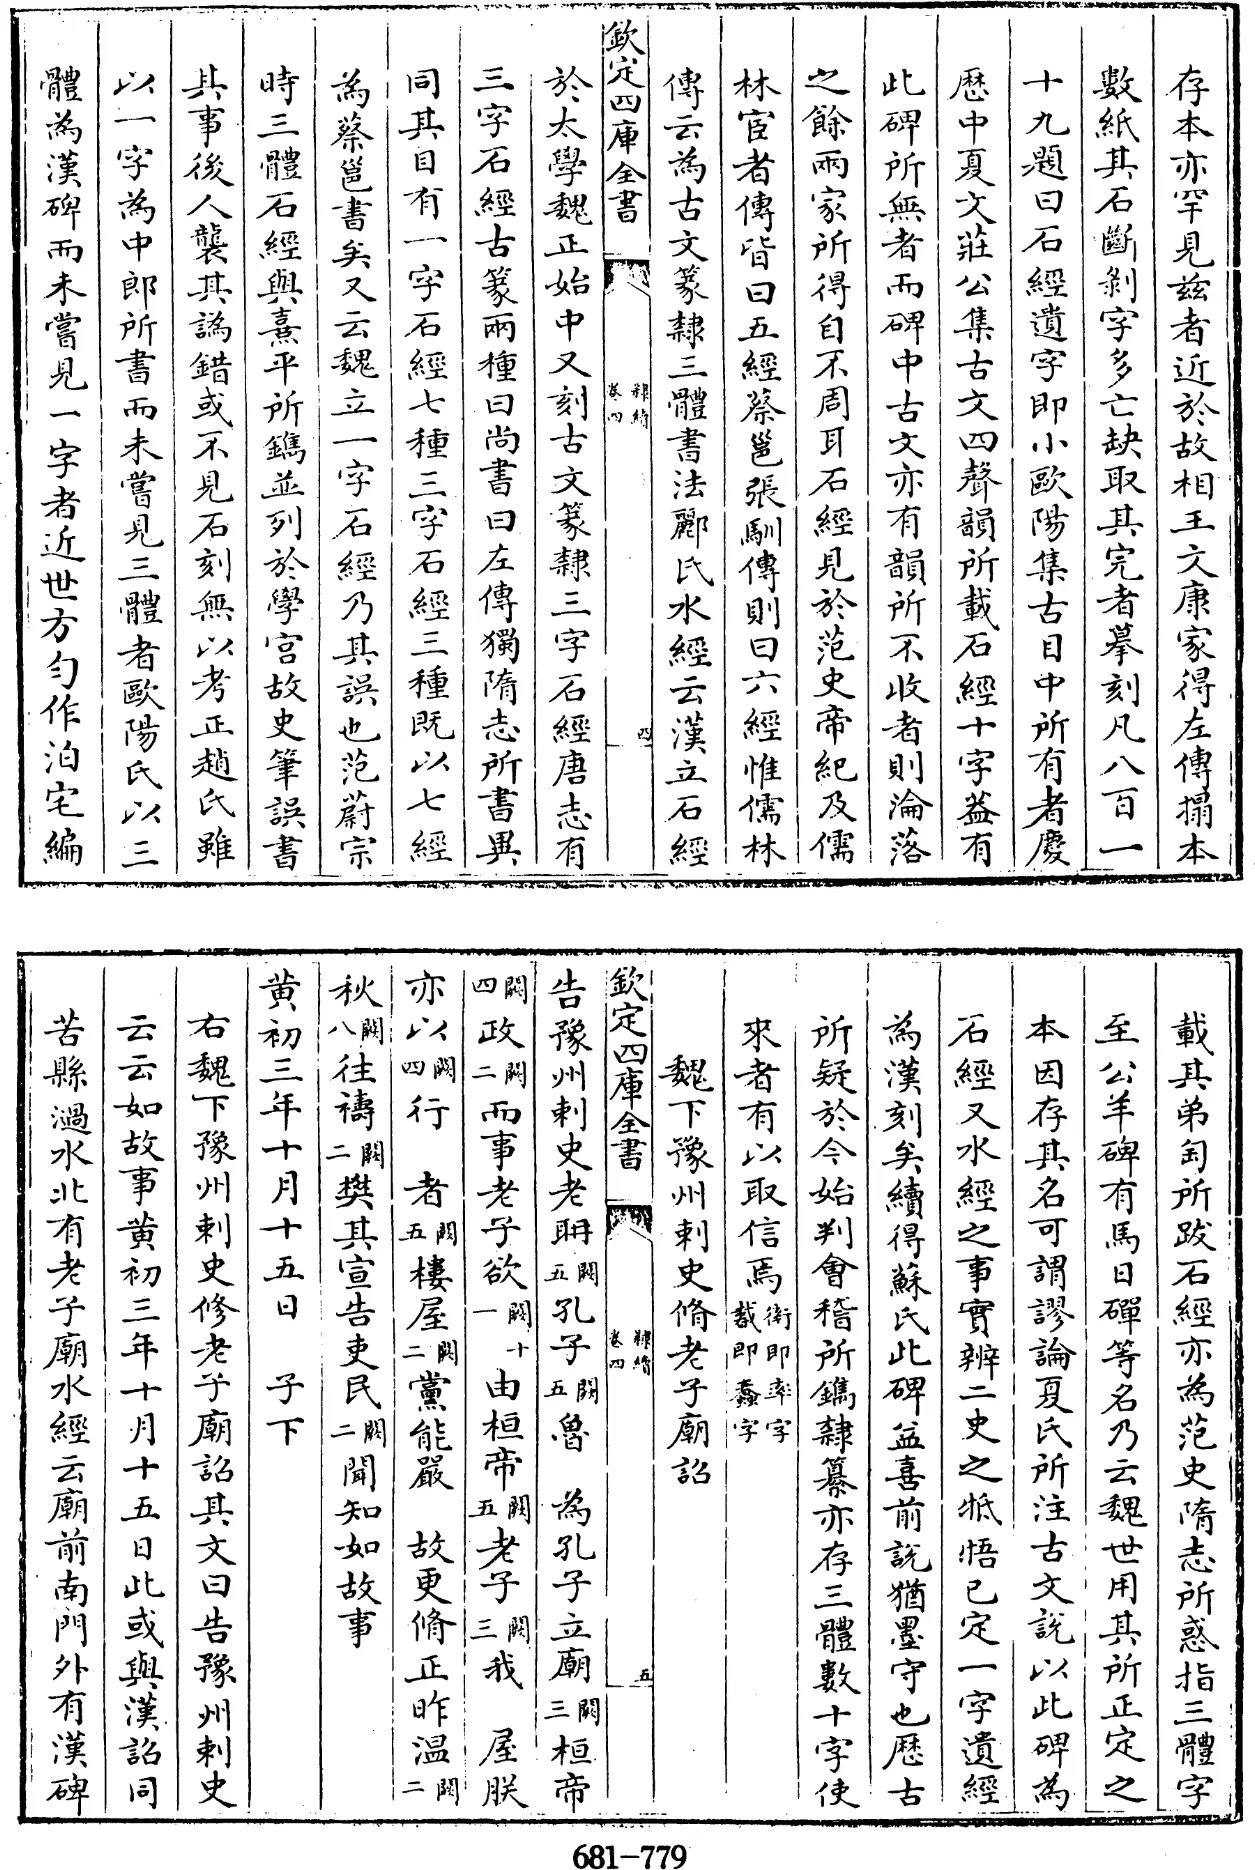 存本亦罕見兹者近於故相王文康家得左傳搨本
數紙其石斷剝字多亡缺取其完者摹刻凡八百一
十九題曰石經遺字即小歐陽集古目中所有者慶
歴中夏文莊公集古文四聲韻所載石經十字葢有
此碑所無者而碑中古文亦有韻所不收者則淪落
之餘兩家所得自不周耳石經見於范史帝紀及儒
林宦者傳皆曰五經蔡邕張馴傳則曰六經惟儒林
傳云為古文篆隸三體書法酈氏水經云漢立石經
欽定四庫全書
隸續
卷四
四
於太學魏正始中又刻古文篆隸三字石經唐志有
三字石經古篆兩種曰尚書曰左傳獨隋志所書異
同其目有一字石經七種三字石經三種既以七經
為蔡邕書矣又云魏立一字石經乃其誤也范蔚宗
時三體石經與熹平所鐫並列於學宫故史筆誤書
其事後人襲其譌錯或不見石刻無以考正趙氏雖
以一字為中郎所書而未嘗見三體者歐陽氏以三
體為漢碑而未嘗見一字者近世方勺作泊宅編
載其弟匋所跋石經亦為范史隋志所惑指三體字
至公羊碑有馬日磾等名乃云魏世用其所正定之
本因存其名可謂謬論夏氏所注古文說以此碑為
石經又水經之事實辨二史之牴牾已定一字遺經
為漢刻矣續得蘇氏此碑益喜前說猶墨守也歴古
所疑於今始判會稽所鐫隸纂亦存三體數十字使
來者有以取信焉 衛即率字 載即蠢字
魏下豫州刺史脩老子廟詔
欽定四庫全書
隸續
卷四
五
告豫州刺史老耼闕五孔子闕五魯 為孔子立廟闕三桓帝
闕四政闕二而事老子欲闕十一由桓帝闕五老子闕三我 屋朕
亦以闕四行 者闕五樓屋闕二黨能嚴 故更脩正昨温闕二
秋闕八往禱闕二樊其宣告吏民闕二聞知如故事
黄初三年十月十五日 子下
右魏下豫州刺史修老子廟詔其文曰告豫州刺史
云云如故事黄初三年十月十五日此或與漢詔同
苦縣濄水北有老子廟水經云廟前南門外有漢碑
681-779